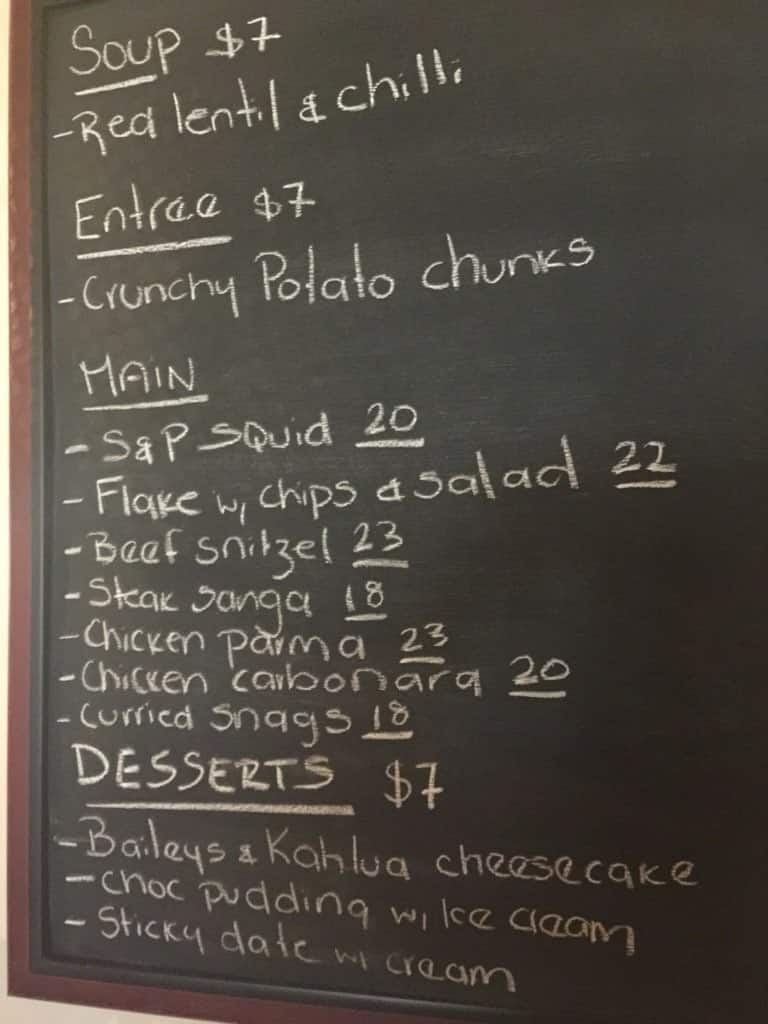 Soup $7
- Red lentil & chilli
Entree $7
- Crunchy Potato chunks
MAIN
- S&P Squid 20
- Flake w, chips & salad 22
- Beef snitzel 23
- Steak sanga 18
- Chicken parma 23
- Chicken carbonara 20
- Curried snags 18
DESSERTS $7
- Baileys & Kahlua cheesecake
- choc pudding w, Ice cream
- Sticky date w, cream